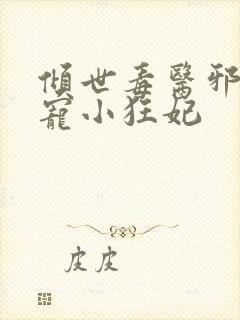 傾世毒醫邪
寵小狂妃
皮皮